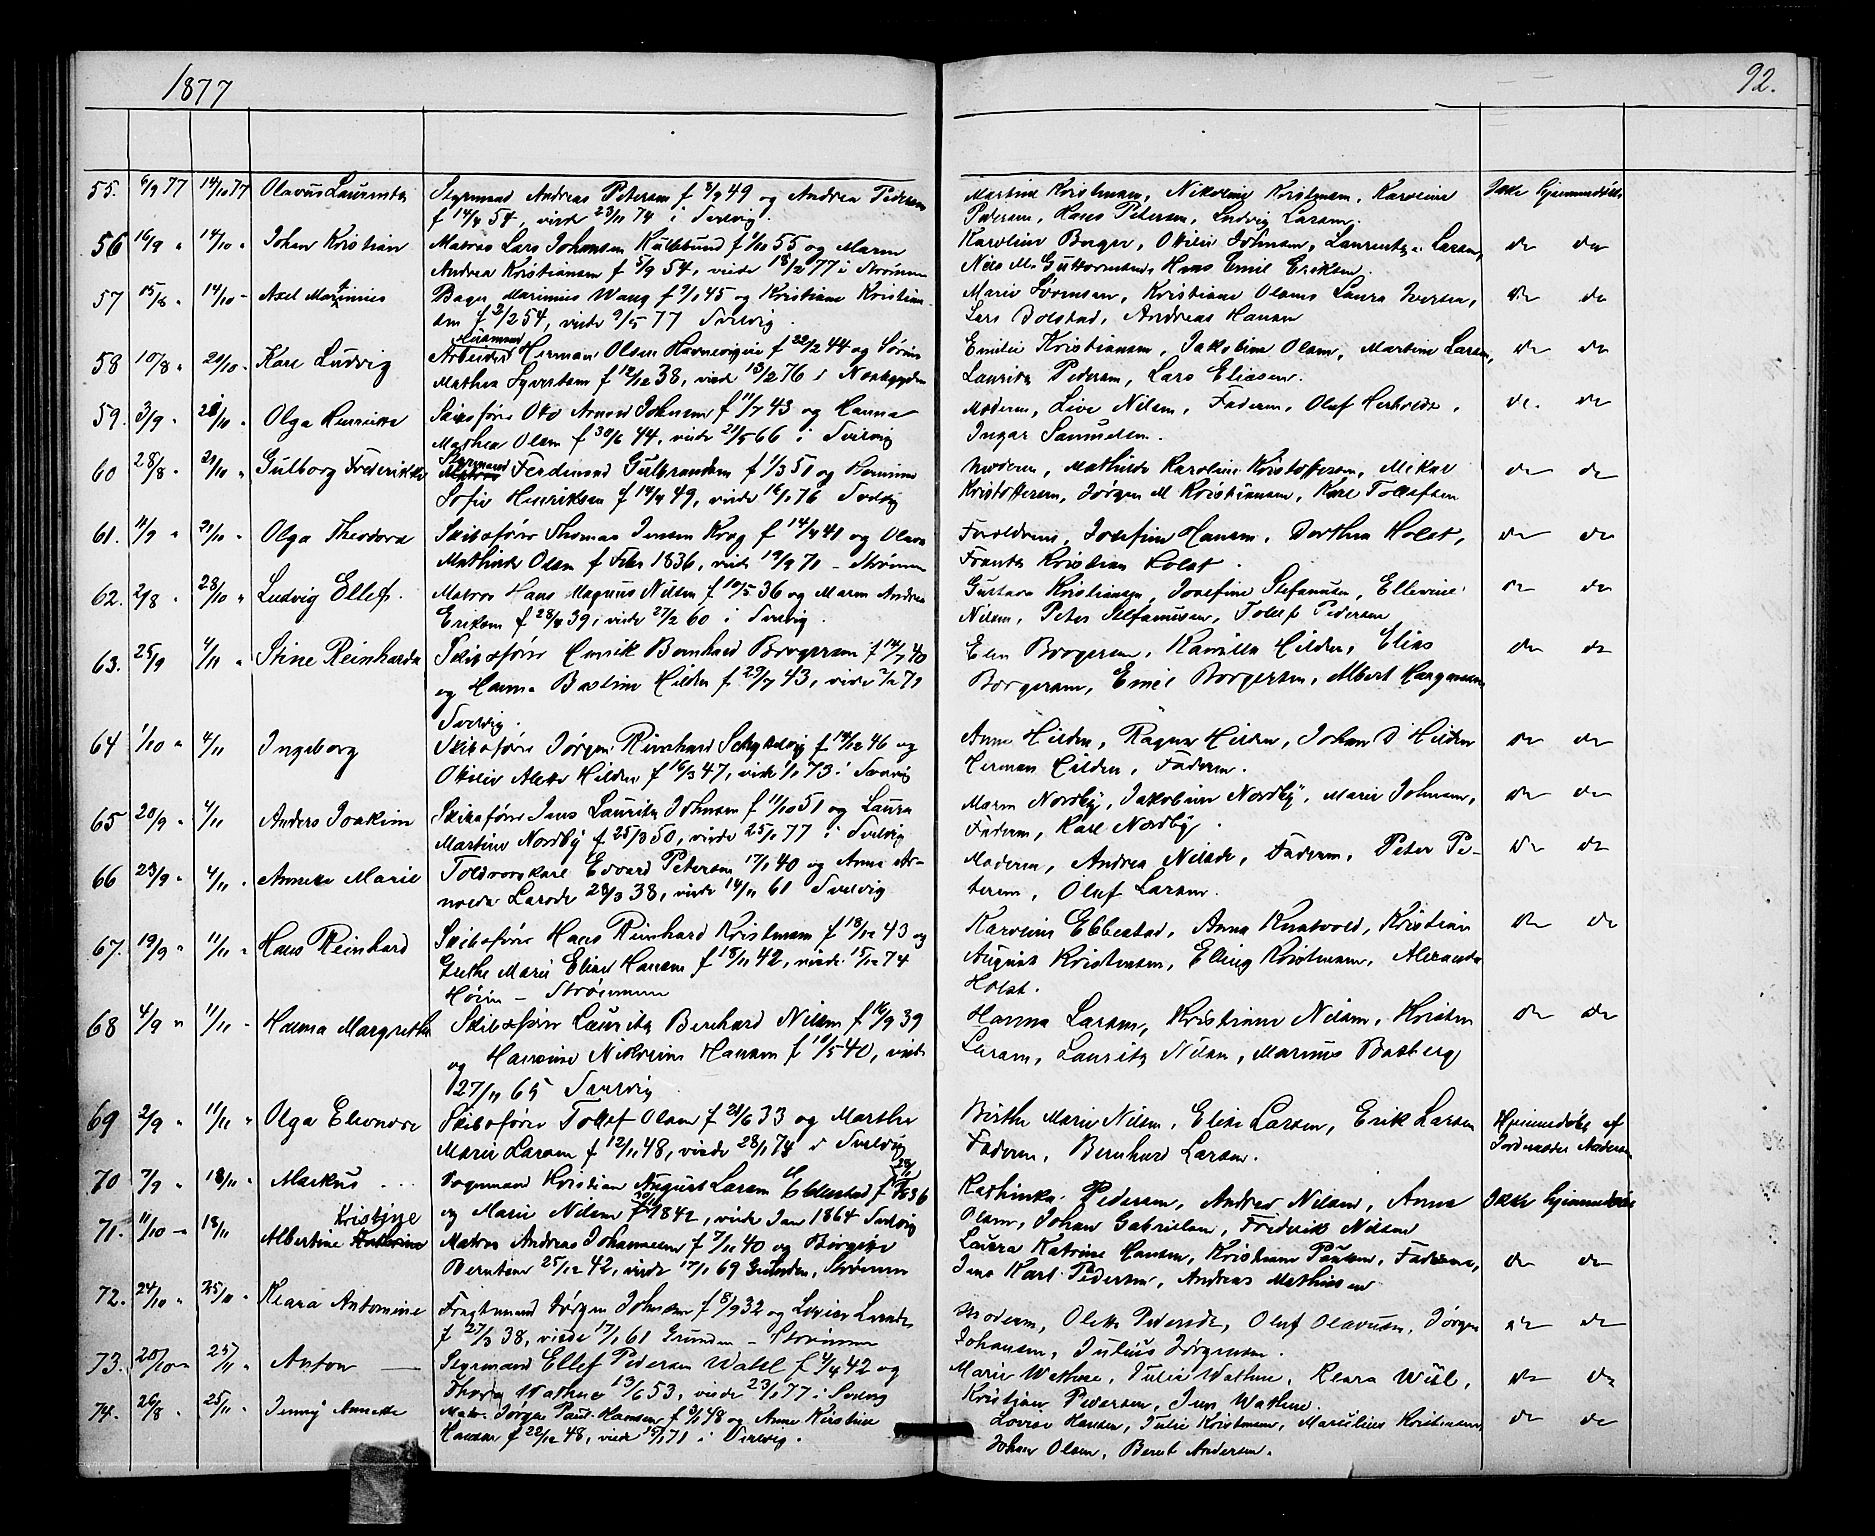 1877
92.
55. 6/9 77 14/10 77 Olavus Lauritz Styrmand Andreas Petersen f 8/9 49 og Andrea Pedersen Martine Kristensen, Nikoline Kristensen, Karoline Ikke Hjemmedøbt
f 14/4 54, viede 23/11 74 i Svelvig. Pedersen, Hans Petersen, Ludvig Larsen.
56 16/9 " 14/10 " Johan Kristian Matros Lars Johansen Kulbund f 1/10 55 og Maren Karoline Borger, Otilie Johnsen, Laurentze Larsen, do do
Andrea Kristiansen f 5/9 54, viede 18/2 77 i Strømm Nils M. Guttormsen, Hans Emil Eriksen.
57 15/8 " 14/10 " Axel Martinius Bager Marinius Wang f 9/1 45 og Kristiane Kristian- Marie Svensen, Kristiane Olsen, Laura Iversen, do do
sen f 2/2 54, viede 9/5 77 Svelvig. Lars Dolstad, Andreas Hansen
58 10/8 " 21/10 " Karl Ludvig Arbeider Herman Olsen Havnevigen f 22/2 44 og Sørine Emilie Kristiansen, Jakobine Olsen, Martine Larsen, do do
Mathea Syvertsen f 12/12 38, viede 13/2 76 i Lauritz Pedersen, Lars Eliasen.
59. 3/9 " 21/10 " Olga Henrikke Skibsfører Otto Arnold Johnsen f 11/7 43 og Hanna Moderen, Live Nilsen, Faderen, Oluf Herholdt, do. do
Mathea Olsen f 30/6 44, viede 21/5 66 i Svelvig Ingar Samuelsen.
60 28/8 " 21/10 " Gulborg Frederikke Styrmand Ferdinand Gulbrandsen f 1/3 51 og Hermine Moderen, Mathilde Karoline Kristoffersen, Mikal do do
Sofie Henriksen f 14/4 49, viede 16/1 76 Svelvig Kristoffersen, Jørgen M Kristiansen, Karl Tollefsen
61. 11/9 " 21/10 " Olga Theodora Skibsfører Thomas Jensen Krog f 14/4 41 og Olava Forældrene, Josefine Hansen, Dorthea Holst, do do
Mathilde Olsen f Febr 1836, viede 19/9 71 – Strømm Frants Kristian Holst.
62. 2/8 " 28/10 " Ludvig Ellef. Matros Hans Magnus Nilsen f 10/5 36 og Maren Andrea Gustava Kristiansen, Josefine Stefansen, Ellevine do do
Eriksen f 28/4 39, viede 27/2 60 i Svelvig. Nilsen, Peter Stefanusen, Tollef Pedersen
63. 25/9 4/11 " Stine Reinharda Skibsfører Henrik Bernhard Borgersen f 14/7 40 Elen Borgersen, Kamilla Hilden, Elias do do
og Hanna Bastine Hilden f 29/7 43, viede 2/2 71 Borgersen, Emil Borgersen, Albert
Svelvig.
64 1/10 " 4/11 Ingeborg Skibsfører Jørgen Reinhard Schjelvig f 14/12 46 og Anne Hilden, Ragna Hilden, Johan D Hilden do do
Otilie Alette Hilden f 16/3 47, viede 1/1 73 i Svelvig Herman Hilden, Faderen.
65 20/9 " 4/11 Anders Joakim Skibsfører Jens Lauritz Johnsen f 11/10 51 og Laura Maren Nordby, Jakobine Nordby, Marie Johnsen, do do
Martine Nordby f 25/3 50, viede 25/1 77 i Svelvig Faderen, Karl Nordby.
66 23/9 " 4/11 " Annette Marie Toldvorskarl Edvard Petersen 17/1 40 og Anna Ar- Moderen, Andrea Nilsdr, Faderen, Peter Pe- do do
nolda Larsdr 28/3 38, viede 14/11 61 Svelvig tersen, Oluf Larsen.
67. 19/9 " 11/11 " Hans Reinhard Skibsfører Hans Reinhard Kristensen f 18/12 43 og Karoline Ebbestad, Anna Knatvold, Kristian do do
Grethe Marie Elise Hansen f 18/11 42, viede 15/12 74 August Kristensen, Elling Kristensen, Alexander
Høien – Strømmen Holst.
68 4/9 " 11/11 – Hanna Margrethe Skibsfører Lauritz Bernhard Nilsen f 16/9 39 Hanna Larsen, Kristiane Nilsen, Kristen do do
og Hansine Nikoline Hansen f 10/5 40, viede Larsen, Lauritz Nilsen, Marius Boxberg
27/11 65 Svelvig.
69 2/9 " 11/11 " Olga Eleonore Skibsfører Tollef Olsen f 21/6 33 og Marthe Birthe Marie Nilsen, Elise Larsen, Erik Larsen Hjemmedøbt af
Marie Larsen f 12/11 48, viede 28/1 78 i Svelvig Faderen, Bernhard Larsen. Jordmoder Andersen
70 7/9 " 18/11 " Markus Dogmand Kristian August Larsen Ebbestad f 1836 Kathinka Pedersen, Andrea Nilsen, Anna Ikke Hjemmedøbt
og Marie Nilsen f 1842, viede Jan 1864 Svelvig Olsen, Johan Gabrielsen, Frederik Nilsen
71. 11/10 – 18/11 Albertine Kristine Matros Andreas Johannesen f 7/11 40 og Birgitte Laura Katrine Hansen, Kristiane Paulsen, Faderen, do do
Berntsen 25/12 42, viede 17/1 69 Grunden, Strømm Jens Karl Pedersen, Andreas Mathisen
72. 24/10 " 25/11 " Klara Antonine Fragtmand Jørgen Johnsen f 8/9 32 og Lovise Lunde Moderen, Olette Pedersdr, Oluf Olavesen, Jørgen do do
f 27/3 38, viede 17/1 61 Grunden – Strømmen Johansen, Julius Jørgensen.
73. 28/10 " 25/11 " Anton Styrmand Ellef Pedersen Wahl f 4/4 42 og Marie Wathne, Julie Wathne, Klara Wiil, do do
Thora Wathne 13/6 53, viede 23/1 77 i Svelvig Kristian Pedersen, Jens Wathne.
74. 26/8 " 25/11 " Jenny Annette Matr. Jørgen Paul Hansen f 3/1 48 og Anne Kirstine Lovise Hansen, Julie Kristensen, Marcilius Kristensen, do do
Hansen f 22/12 48, viede 15/1 71 i Svelvig. Johan Olsen, Bernt Andersen.